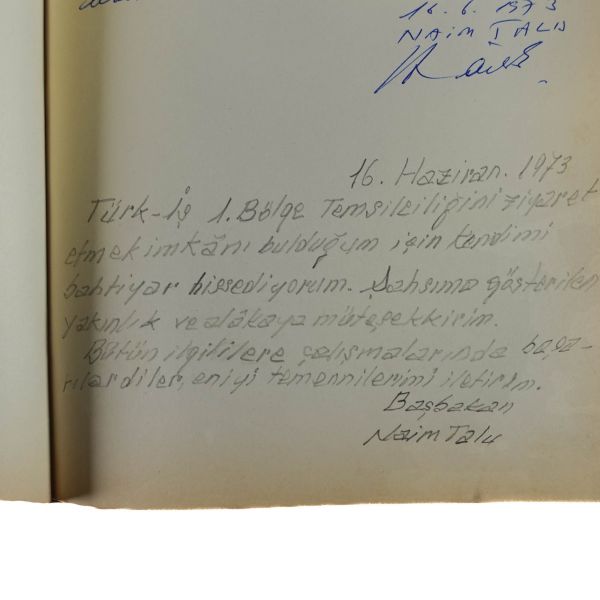 16.6.1973
NAİM TALU
16. Haziran. 1973
Türk-İş 1. Bölge Temsilciliğini ziyaret
etmek imkânı bulduğum için kendimi
bahtiyar hissediyorum. Şahsıma gösterilen
yakınlık ve alâkaya müteşekkirim.
Bütün ilgililere çalışmalarında başa-
rılar diler, en iyi temennilerimi iletirim.
Başbakan
Naim Talu